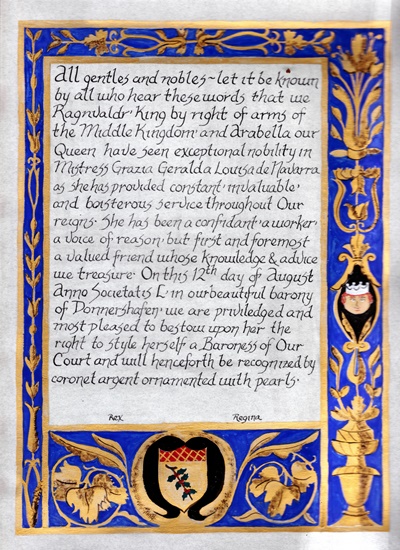 All gentles and nobles~let it be known
by all who hear these words that we
Ragnvaldr King by right of arms of
the Middle Kingdom and Arabella our
Queen have seen exceptional nobility in
Mistress Grazia Geralda Louisa de Navarra
as she has provided constant invaluable
and boisterous service throughout Our
reigns. She has been a confidant a worker
a voice of reason but first and foremost
a valued friend whose knowledge & advice
we treasure. On this 12th day of August
Anno Societatis L in our beautiful barony
of Donnershafen we are priviledged and
most pleased to bestow upon her the
right to style herself a Baroness of Our
Court and will henceforth be recognized by
coronet argent ornamented with pearls.
Rex Regina